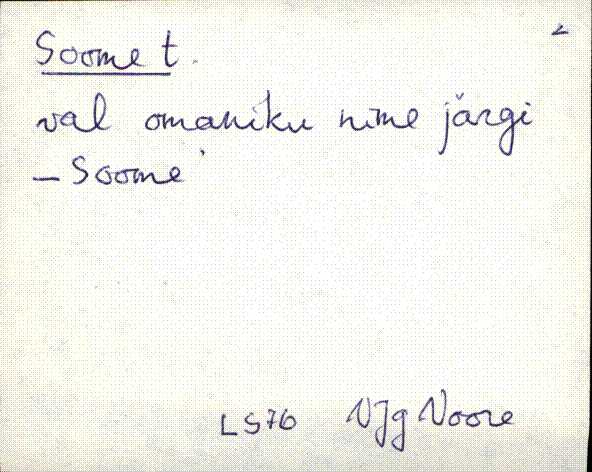 Soome t.
val omaniku nime järgi
– Soome
LS76 VJg Voore